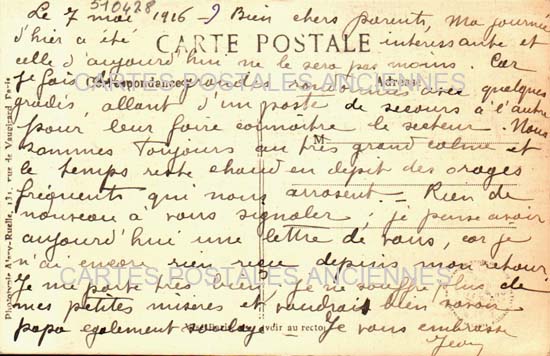 510428
Le 7 mai 1916 - Bien chers parents, Ma journée
d'hier a été intéressante et
CARTE POSTALE
celle d'aujourd'hui ne le sera pas moins. Car
je fais de grandes randonnées avec quelques
Correspondance
Adresse
CARTES POSTALES ANCIENNES
gradés, allant d'un poste de secours à l'autre
pour leur faire connaître le secteur. Nous
M
sommes toujours au très grand calme et
le temps reste chaud en dépit des orages
fréquents qui nous arrosent. - Rien de
nouveau à vous signaler ; je pense avoir
aujourd'hui une lettre de vous, car je
n'ai encore rien reçu depuis mon retour.
CARTES POSTALES ANCIENNES
Je me porte très bien, je ne souffre plus de
mes petites misères et voudrais bien savoir
papa également soulagé. - Je vous embrasse
au recto
Jean
Photographie A. 131, rue de Vaugirard Paris